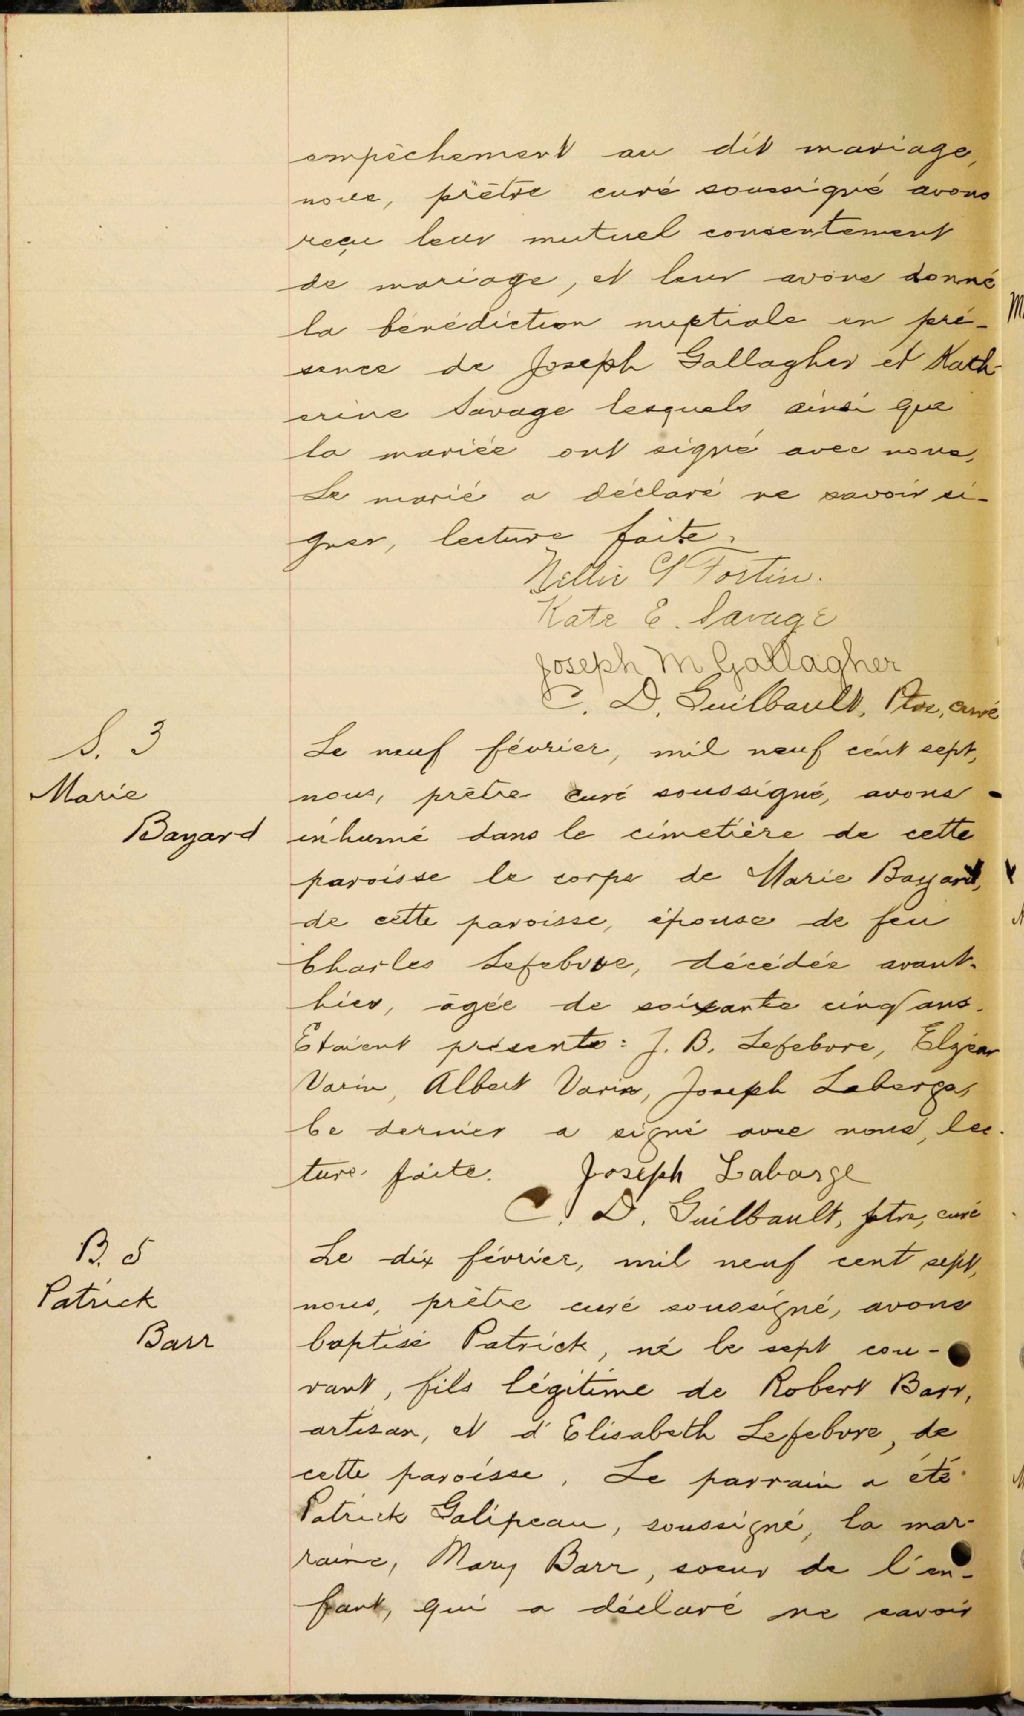 empêchement au dit mariage,
nous, prêtre curé soussigné avons
reçu leur mutuel consentement
de mariage, et leur avons donné
la bénédiction nuptiale en pré-
sence de Joseph Gallagher et Kath-
erine Savage lesquels ainsi que
la mariée ont signé avec nous,
Le marié a déclaré ne savoir si-
gner, lecture faite.
Nellie Fortin.
Kate E. Savage
Joseph M Gallagher
C. D. Guilbault, Ptre, curé
S. 3
Marie
Bayard
Le neuf février, mil neuf cent sept,
nous, prêtre curé soussigné, avons
inhumé dans le cimetière de cette
paroisse le corps de Marie Bayard,
de cette paroisse, épouse de feu
Charles Lefebvre, décédée avant-
hier, âgée de soixante cinq ans.
Etaient présents: J. B. Lefebvre, Elzéar
Varin, Albert Varin, Joseph Laberge,
Ce dernier a signé avec nous, lec-
ture faite. Joseph Labarge
C. D. Guilbault, ptre, curé
B. 5
Patrick
Barr
Le dix février, mil neuf cent sept,
nous, prêtre curé soussigné, avons
baptisé Patrick, né le sept cou-
rant, fils légitime de Robert Barr,
artisan, et d'Elisabeth Lefebvre, de
cette paroisse. Le parrain a été
Patrick Galipeau, soussigné, la mar-
raine, Mary Barr, soeur de l'en-
fant, qui a déclaré ne savoir